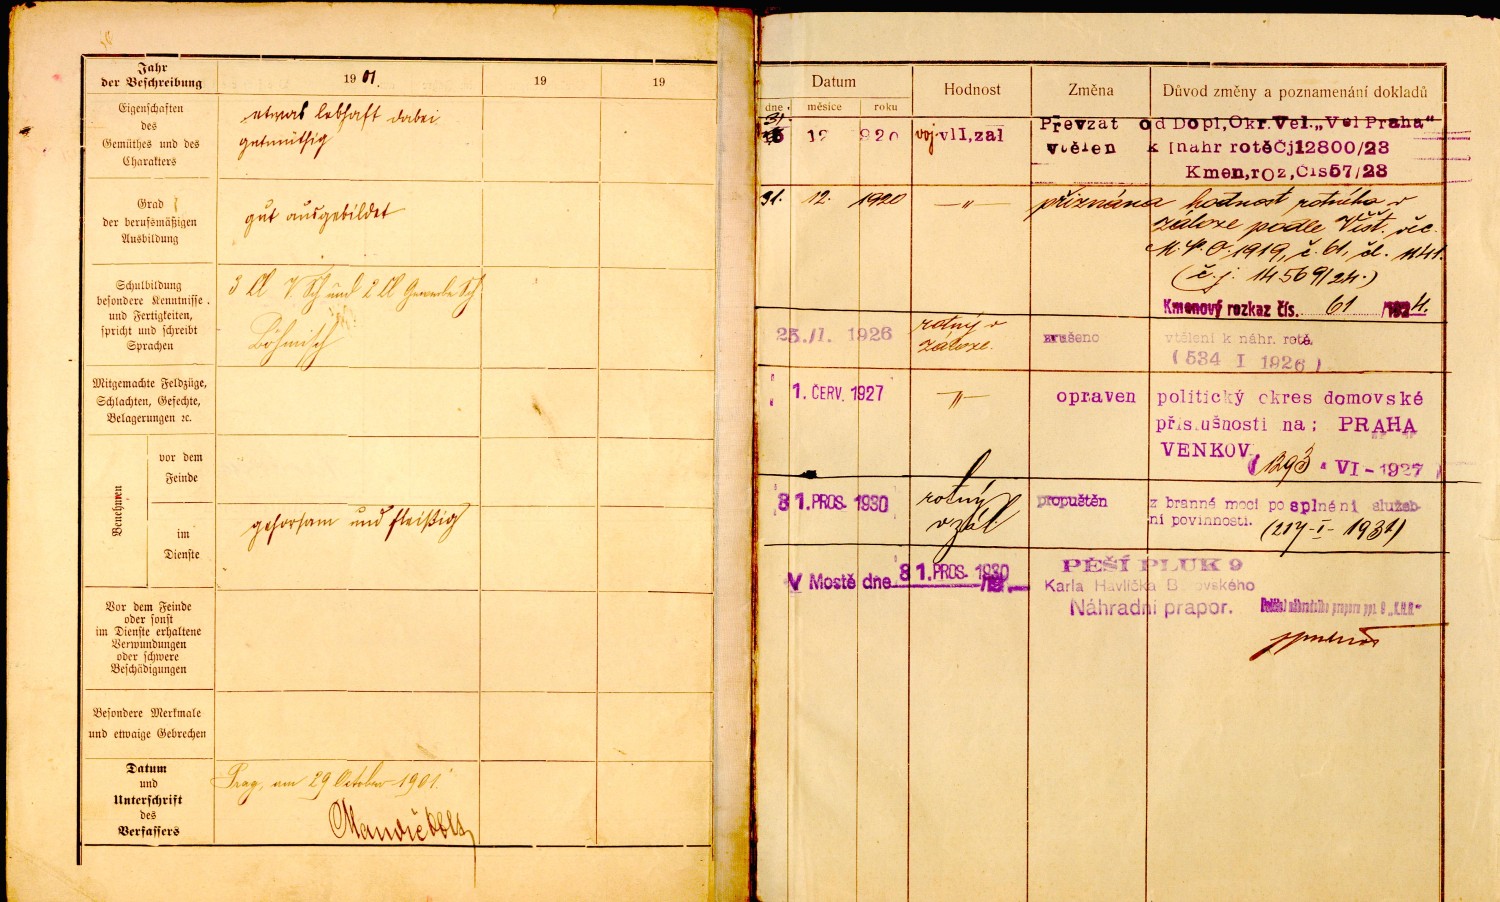 Jahr
der Beschreibung
1901.
19
19
Eigenschaften
des
Gemüthes und des
Charakters
etwas lebhaft dabei
gutmüthig
Grad
der berufsmäßigen
Ausbildung
gut ausgebildet
Schulbildung
besondere Kenntnisse
und Fertigkeiten,
spricht und schreibt
Sprachen
3 Cl V Sch und 2 Cl Gewerbe Sch
Böhmisch
Mitgemachte Feldzüge,
Schlachten, Gefechte,
Belagerungen ꝛc.
Benehmen
vor dem
Feinde
im
Dienste
gehorsam und fleißig
Vor dem Feinde
oder sonst
im Dienste erhaltene
Verwundungen
oder schwere
Beschädigungen
Besondere Merkmale
und etwaige Gebrechen
Datum
und
Unterschrift
des
Verfassers
Prag, am 29 October 1901.
Datum
Hodnost
Změna
Důvod změny a poznamenání dokladů
dne
měsíce
roku
31 12 920 voj. vII, zál Převzat od Dopl, Okr. Vel. „Vel Praha"
vtělen k náhr rotě Čj 12800/23
Kmen, roz, Čís 57/23
31. 12. 1920 —„— přiznána hodnost rotného v
záloze podle Věst. věc.
M. N. O. 1919, č. 61, čl. 1141.
(č.j. 14569/24.)
Kmenový rozkaz čís. 61 /1924.
25. II. 1926 rotný v zrušeno vtělení k náhr. rotě,
záloze. (534 I 1926)
1. ČERV. 1927 —„— opraven politický okres domovské
příslušnosti na: PRAHA
VENKOV.
(1293 VI - 1927)
31. PROS. 1930 rotný propuštěn z branné moci po splnění služeb-
v zál. ní povinnosti. (217-I-1931)
V Mostě dne 31. PROS. 1930
PĚŠÍ PLUK 9
Karla Havlíčka Borovského
Náhradní prapor.
Velitel náhradního praporu pěš. pl. 9 „K.H.B."